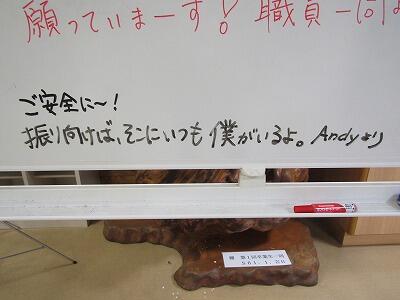 願っていまーす! 職員一同
ご安全に〜!
振り向けば、そこにいつも僕がいるよ。Andyより
贈 第1回卒業生一同